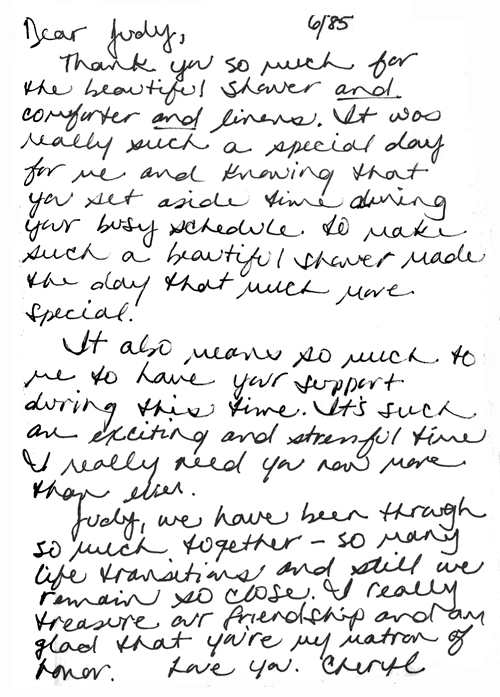 Dear Judy, 6/85
Thank you so much for
the beautiful shower and
comforter and linens. It was
really such a special day
for me and knowing that
you set aside time during
your busy schedule to make
such a beautiful shower made
the day that much more
special.
It also means so much to
me to have your support
during this time. It's such
an exciting and stressful time
I really need you now more
than ever.
Judy, we have been through
so much together - so many
life transitions and still we
remain so close. I really
treasure our friendship and am
glad that you're my matron of
honor. Love you. Cheryl